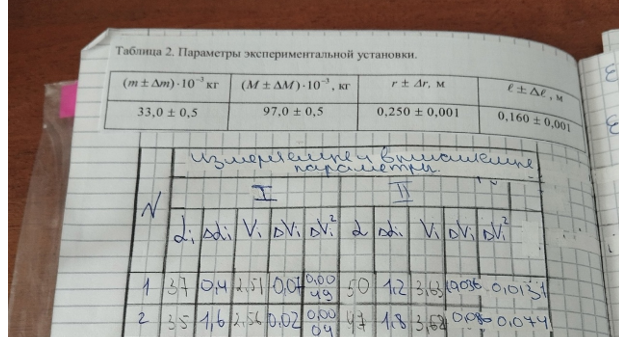 Таблица 2. Параметры экспериментальной установки.
(m ± Δm)·10⁻³ кг (M ± ΔM)·10⁻³, кг r ± Δr, м ℓ ± Δℓ, м
33,0 ± 0,5 97,0 ± 0,5 0,250 ± 0,001 0,160 ± 0,001
измеряемые и вычисляемые
параметры.
N I II
αi Δαi Vi ΔVi ΔVi² α Δαi Vi ΔVi ΔVi²
1 37 0,4 2,51 0,07 0,0049 50 1,2 3,63 0,0131
2 35 1,6 2,56 0,02 0,0004 47 1,8 0,074